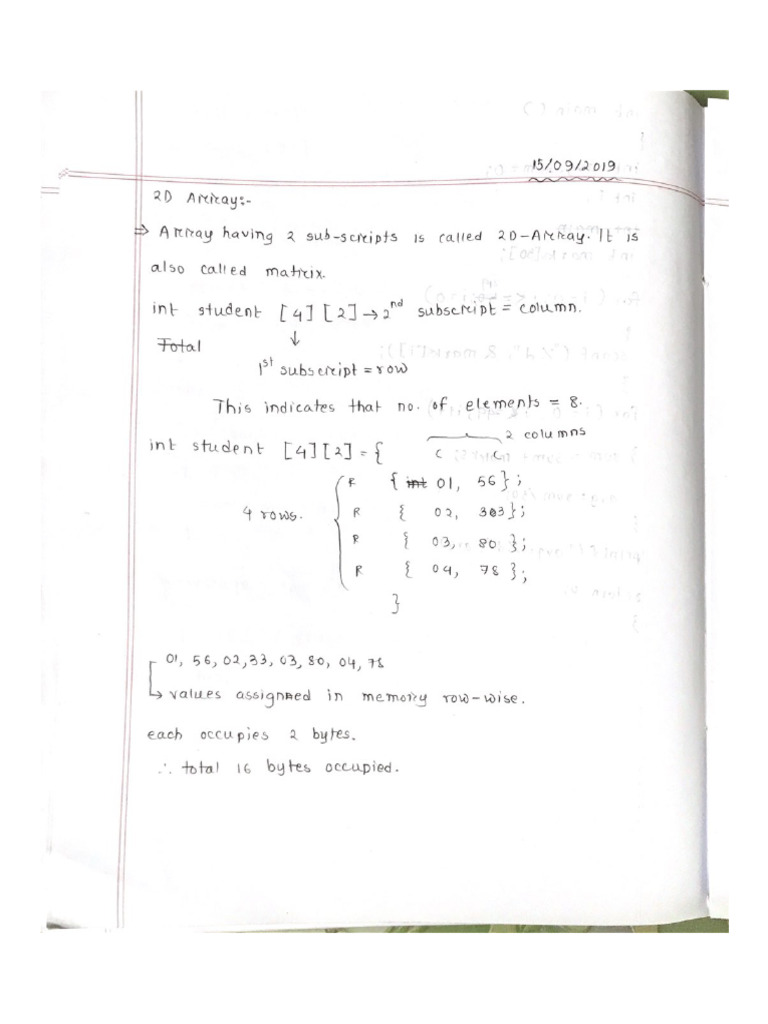 15/09/2019
2D Array:-
⇒ Array having 2 sub-scripts is called 2D-Array. It is
also called matrix.
int student [4][2] → 2nd subscript = column.
Total ↓
1st subscript = row
This indicates that no. of elements = 8.
2 columns
int student [4][2] = { C C
R { int 01, 56};
4 rows. R { 02, 33};
R { 03, 80};
R { 04, 78};
}
01, 56, 02, 33, 03, 80, 04, 78
↳ values assigned in memory row-wise.
each occupies 2 bytes.
∴ total 16 bytes occupied.